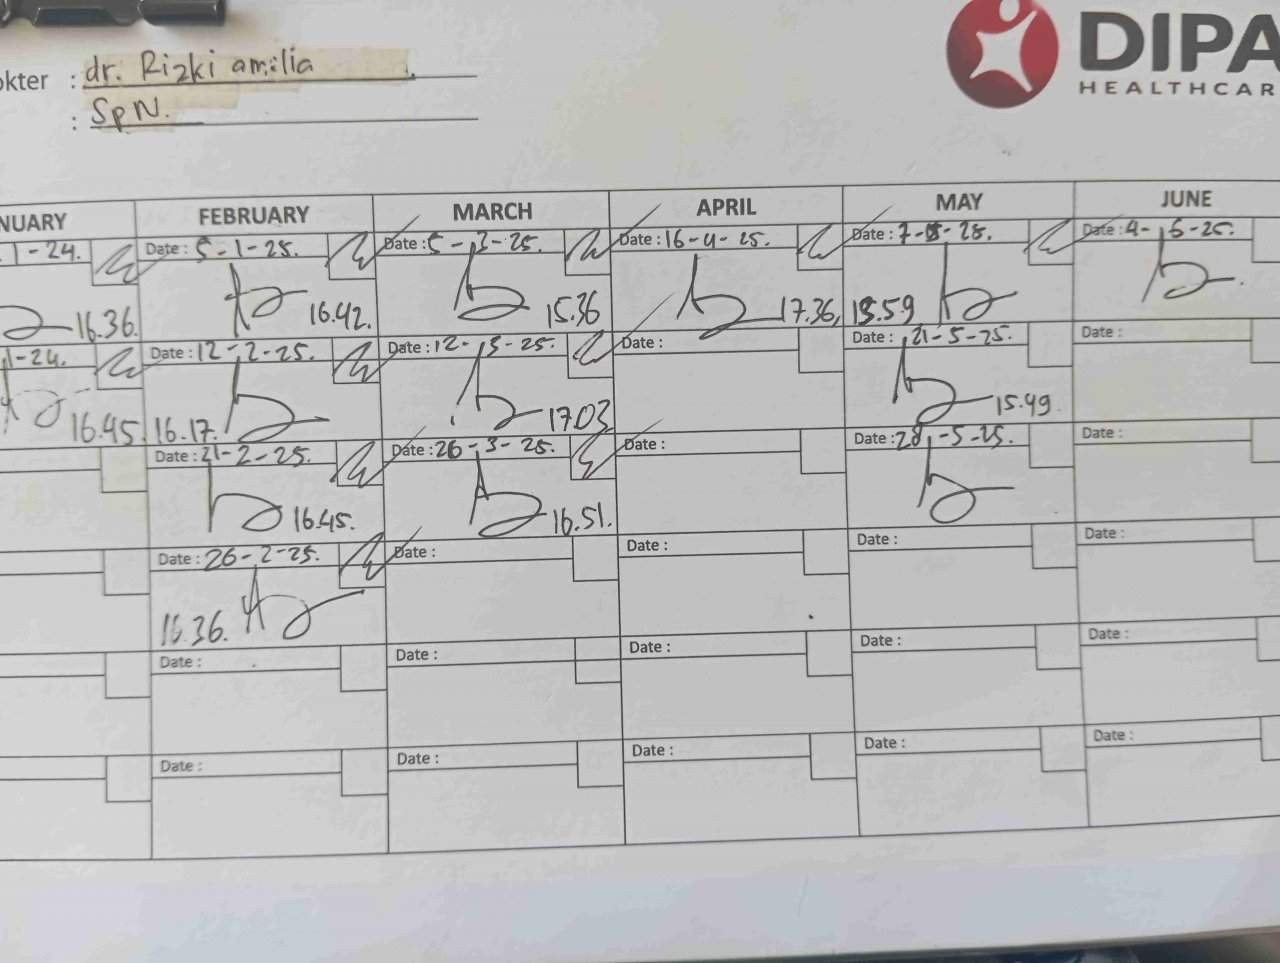 okter : dr. Rizki amilia
: SpN.
DIPA
HEALTHCAR
NUARY FEBRUARY MARCH APRIL MAY JUNE
1-24. Date : 5-1-25. Date : 5-3-25. Date : 16-4-25. Date : 7-5-25. Date : 4-6-25.
16.36. 16.42. 15.36 17.36, 15.59
1-24. Date : 12-2-25. Date : 12-3-25. Date : Date : 21-5-25. Date :
16.45. 16.17. 17.03 15.49
Date : 21-2-25. Date : 26-3-25. Date : Date : 28-5-25. Date :
16.45. 16.51.
Date : 26-2-25. Date : Date : Date : Date :
16.36.
Date : Date : Date : Date : Date :
Date : Date : Date : Date : Date :